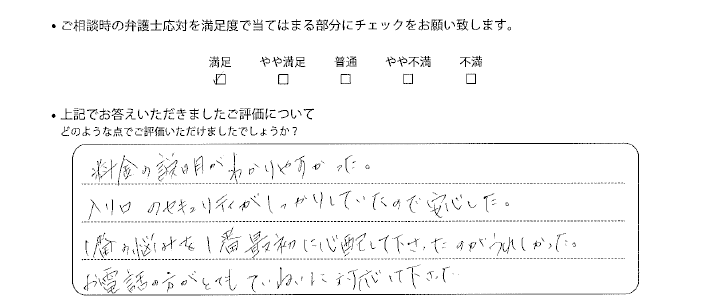 ・ご相談時の弁護士応対を満足度で当てはまる部分にチェックをお願い致します。
満足 やや満足 普通 やや不満 不満
・上記でお答えいただきましたご評価について
どのような点でご評価いただけましたでしょうか？
料金の説明がわかりやすかった。
入り口のセキュリティがしっかりしていたので安心した。
1番の悩みを1番最初に心配して下さったのがうれしかった。
お電話の方がとてもていねいに対応して下さった